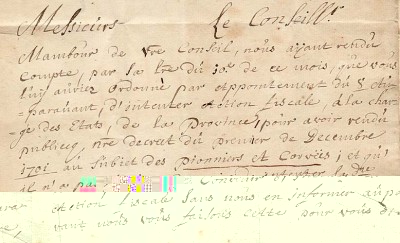 Messieurs Le Conseillr
Mambour de vre Conseil, nous ayant rendu
Compte, par sa lre du 10e de ce mois, que vous
luy auriez Ordonné par appointement du 8 
=paravant, d'intenter Action fiscale, à la char
=je des Etats, de la Province, pour avoir rendu
publicq, nre decret du premier de Decembre
1701 au subiet des pionniers et Corvées, et qu'
il n'a pa
Action fiscale sans nous en informer aupa
vant nous vous faisons cette pour vous di